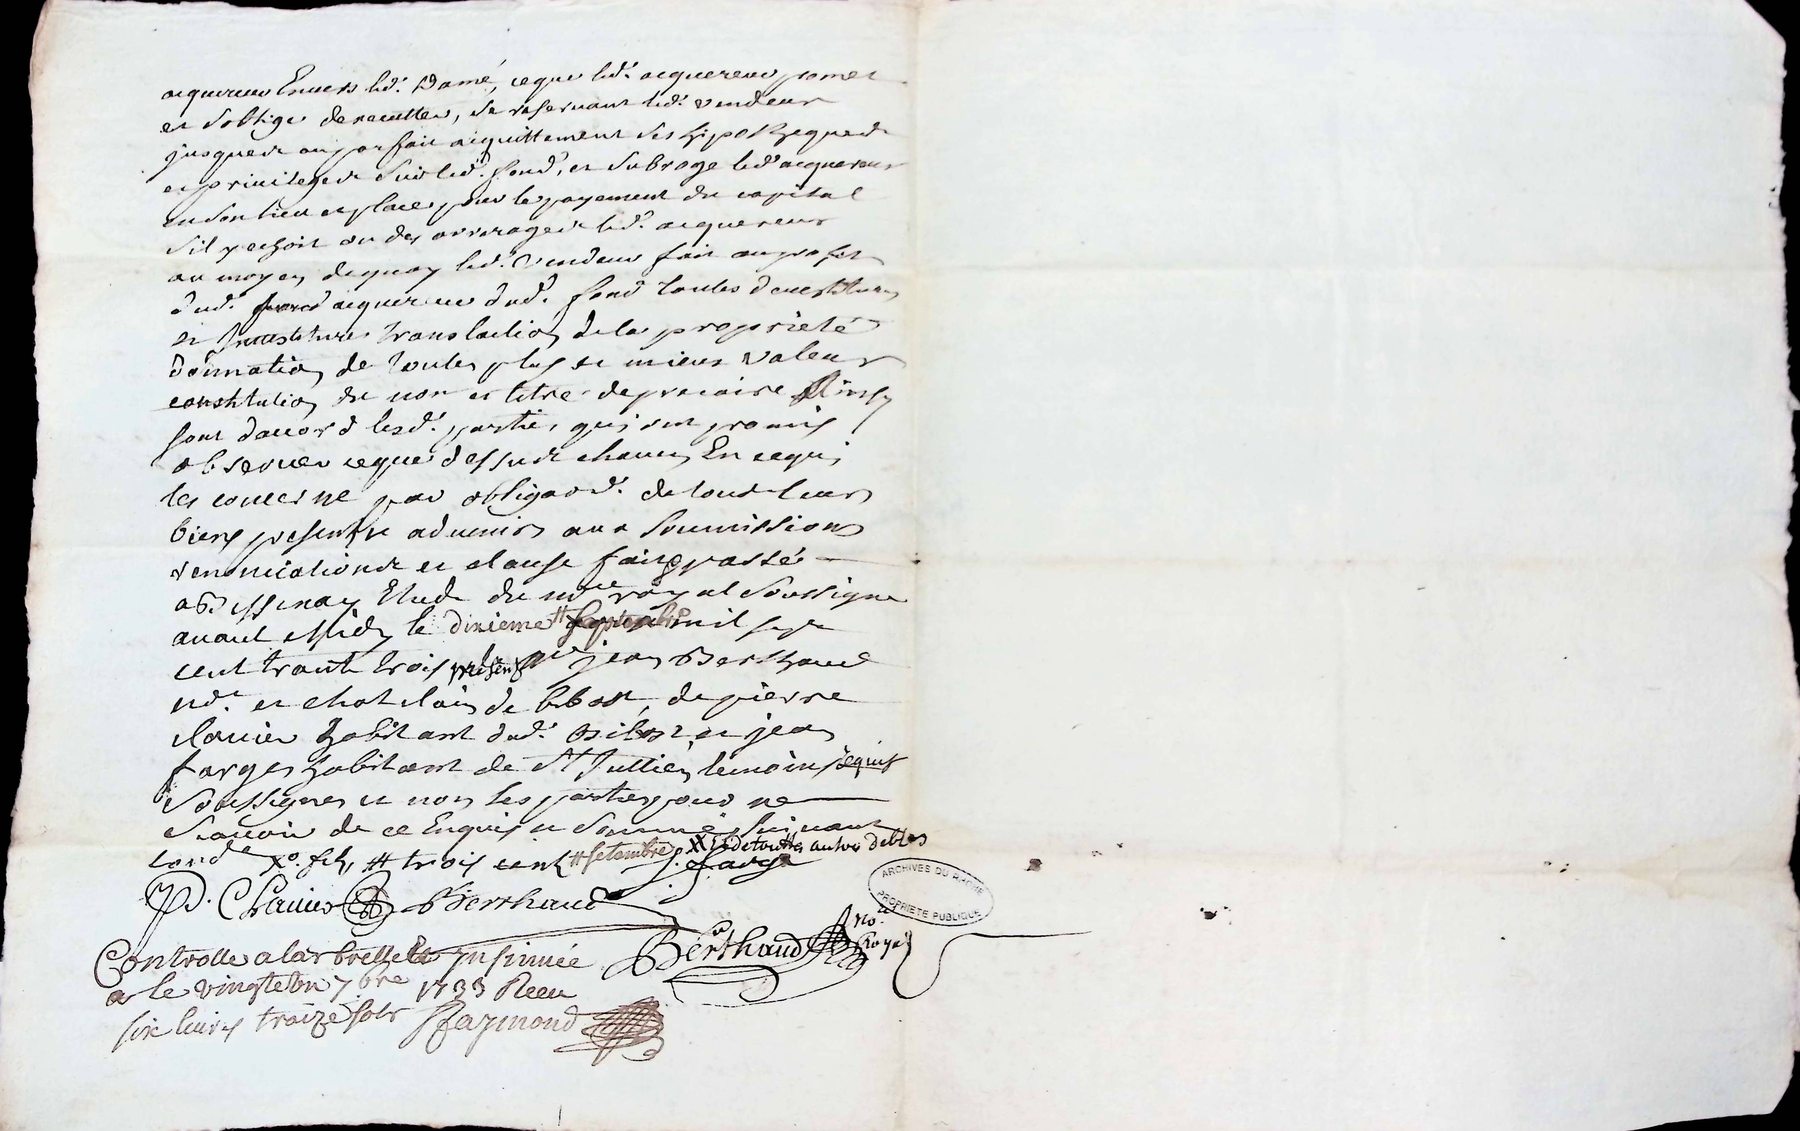 acquereur Envers led. Damé, ceque led. acquereur promet
et soblige dexecutter, se reservant led. vendeur
jusques au parfait acquittement ses hipotheques
et privileges sur led. fond, et subroge led. acquereur
en son lieu et place pour le payement du capital
sil y echoit ou des arrerages led. acquereur
au moyen dequoy led. vendeur fait au profit
dud. acquereur dud. fond toutes devestitures
et Investitures translation de la proprieté
donnation de toutes plus et mieux valeur
constitution de nom et titre de precaire Ainsy
sont daccord lesd. parties qui ont promis
observer ceque dessus chacun En cequi
les concerne par obligaon. de tous leurs
biens presents et advenir aux soumissions
renonciations et clause fait et passé
a Bessenay Etude du nore royal soussigne
avant Midy le dixieme # mil sept
cent trante trois presents me jean Berthaud
nre. et chatelain de bibost, de pierre
Clavier habitant dud. Bibost et jean
farges habitant de St Jullien temoins requis
soussignes et non les parties pour ne
scavoir de ce Enquis et sommé suivant
lord. # trois cent # setembre XX et de toutte autre debtes
J. farge
P. Clavier Berthaud
Berthaud no. Royal
Controlle a larbresle et insinuée
le vingt et un 7bre 1733 Receu
six livres traize sols Raymond
ARCHIVES DU RHONE
PROPRIETE PUBLIQUE